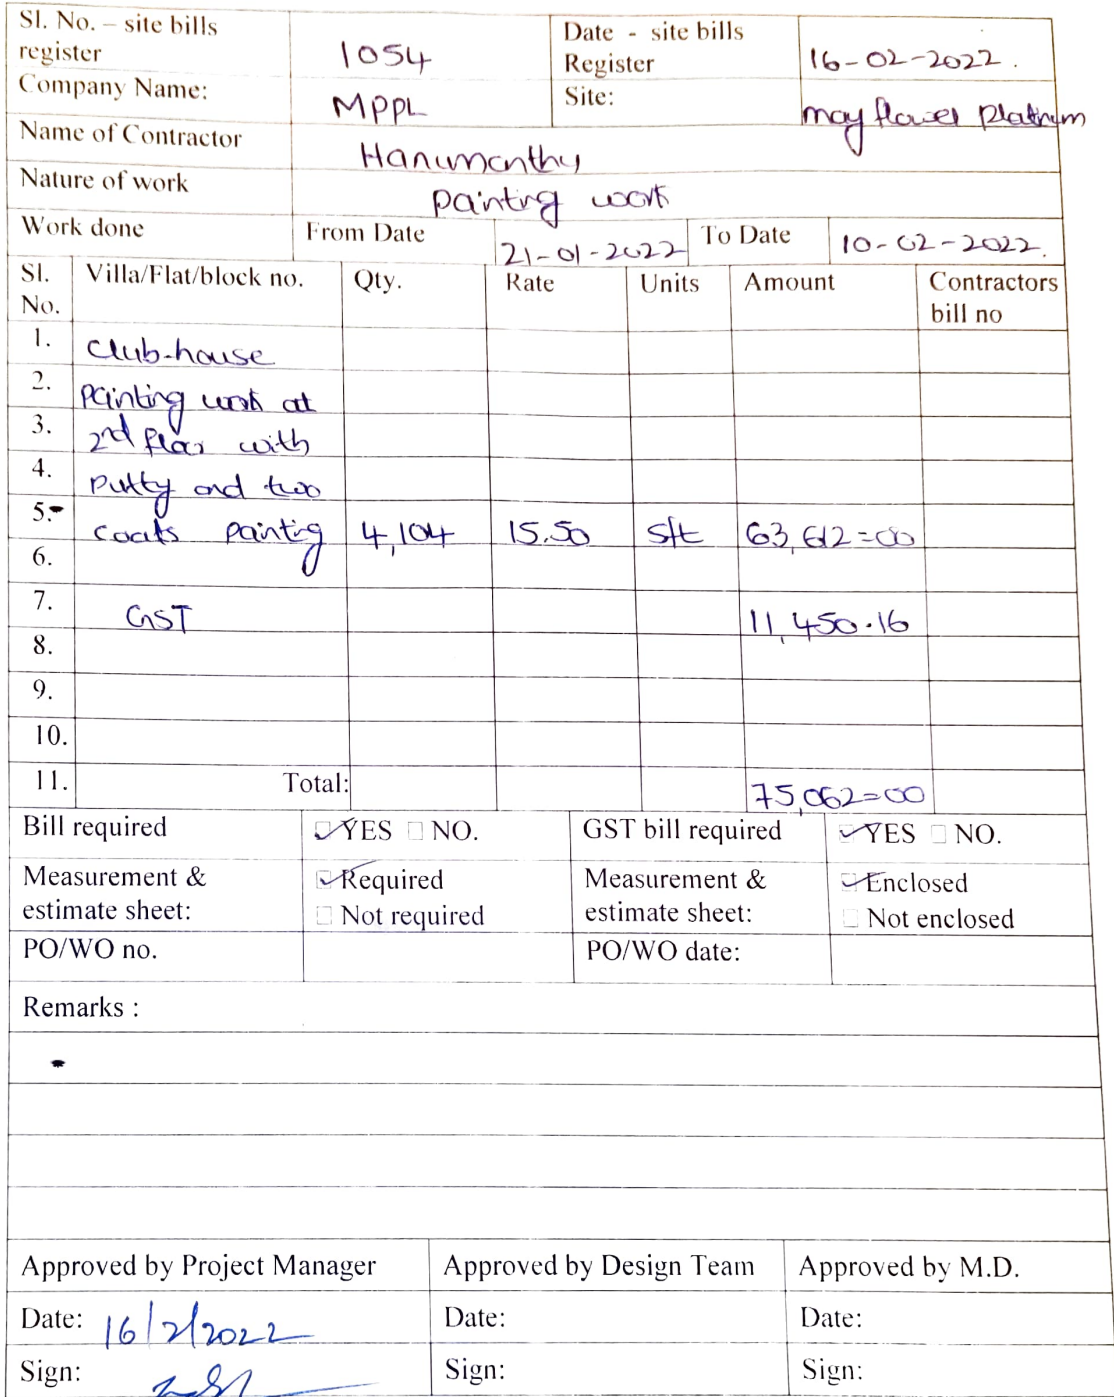 Sl. No. – site bills register 1054 Date - site bills Register 16-02-2022.
Company Name: MPPL Site: may flower platinum
Name of Contractor Hanumanthu
Nature of work painting work
Work done From Date 21-01-2022 To Date 10-02-2022.
Sl. No. Villa/Flat/block no. Qty. Rate Units Amount Contractors bill no
1. club-house
2. painting work at
3. 2nd floor with
4. putty and two
5. coats painting 4,104 15.50 sft 63,612=00
6.
7. GST 11,450.16
8.
9.
10.
11. Total: 75,062=00
Bill required YES NO. GST bill required YES NO.
Measurement & estimate sheet: Required Not required Measurement & estimate sheet: Enclosed Not enclosed
PO/WO no. PO/WO date:
Remarks :
Approved by Project Manager Approved by Design Team Approved by M.D.
Date: 16/2/2022 Date: Date:
Sign: Sign: Sign: